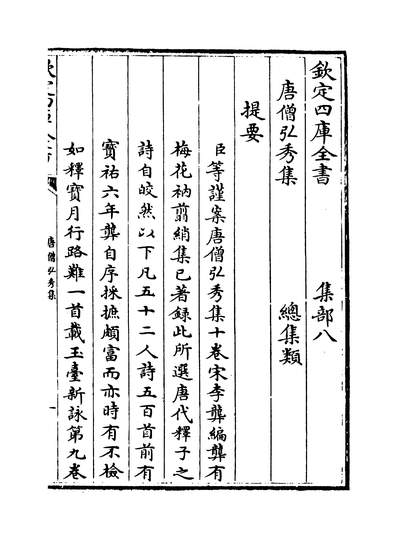 欽定四庫全書　集部八
唐僧弘秀集　總集類
提要
臣等謹案唐僧弘秀集十卷宋李龏編龏有
梅花衲翦綃集已著録此所選唐代釋子之
詩自皎然以下凡五十二人詩五百首前有
寳祐六年龏自序採摭頗富而亦時有不檢
如釋寳月行路難一首載玉臺新詠第九卷
唐僧弘秀集
一